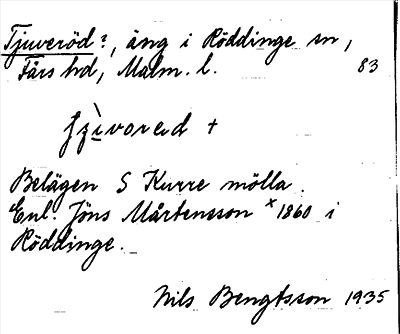 Tjuveröd?, äng i Röddinge sn,
Färs hd, Malm. l. 83
Belägen S Kurre mölla.
Enl. Jöns Mårtensson x 1860 i
Röddinge.
Nils Bengtsson 1935